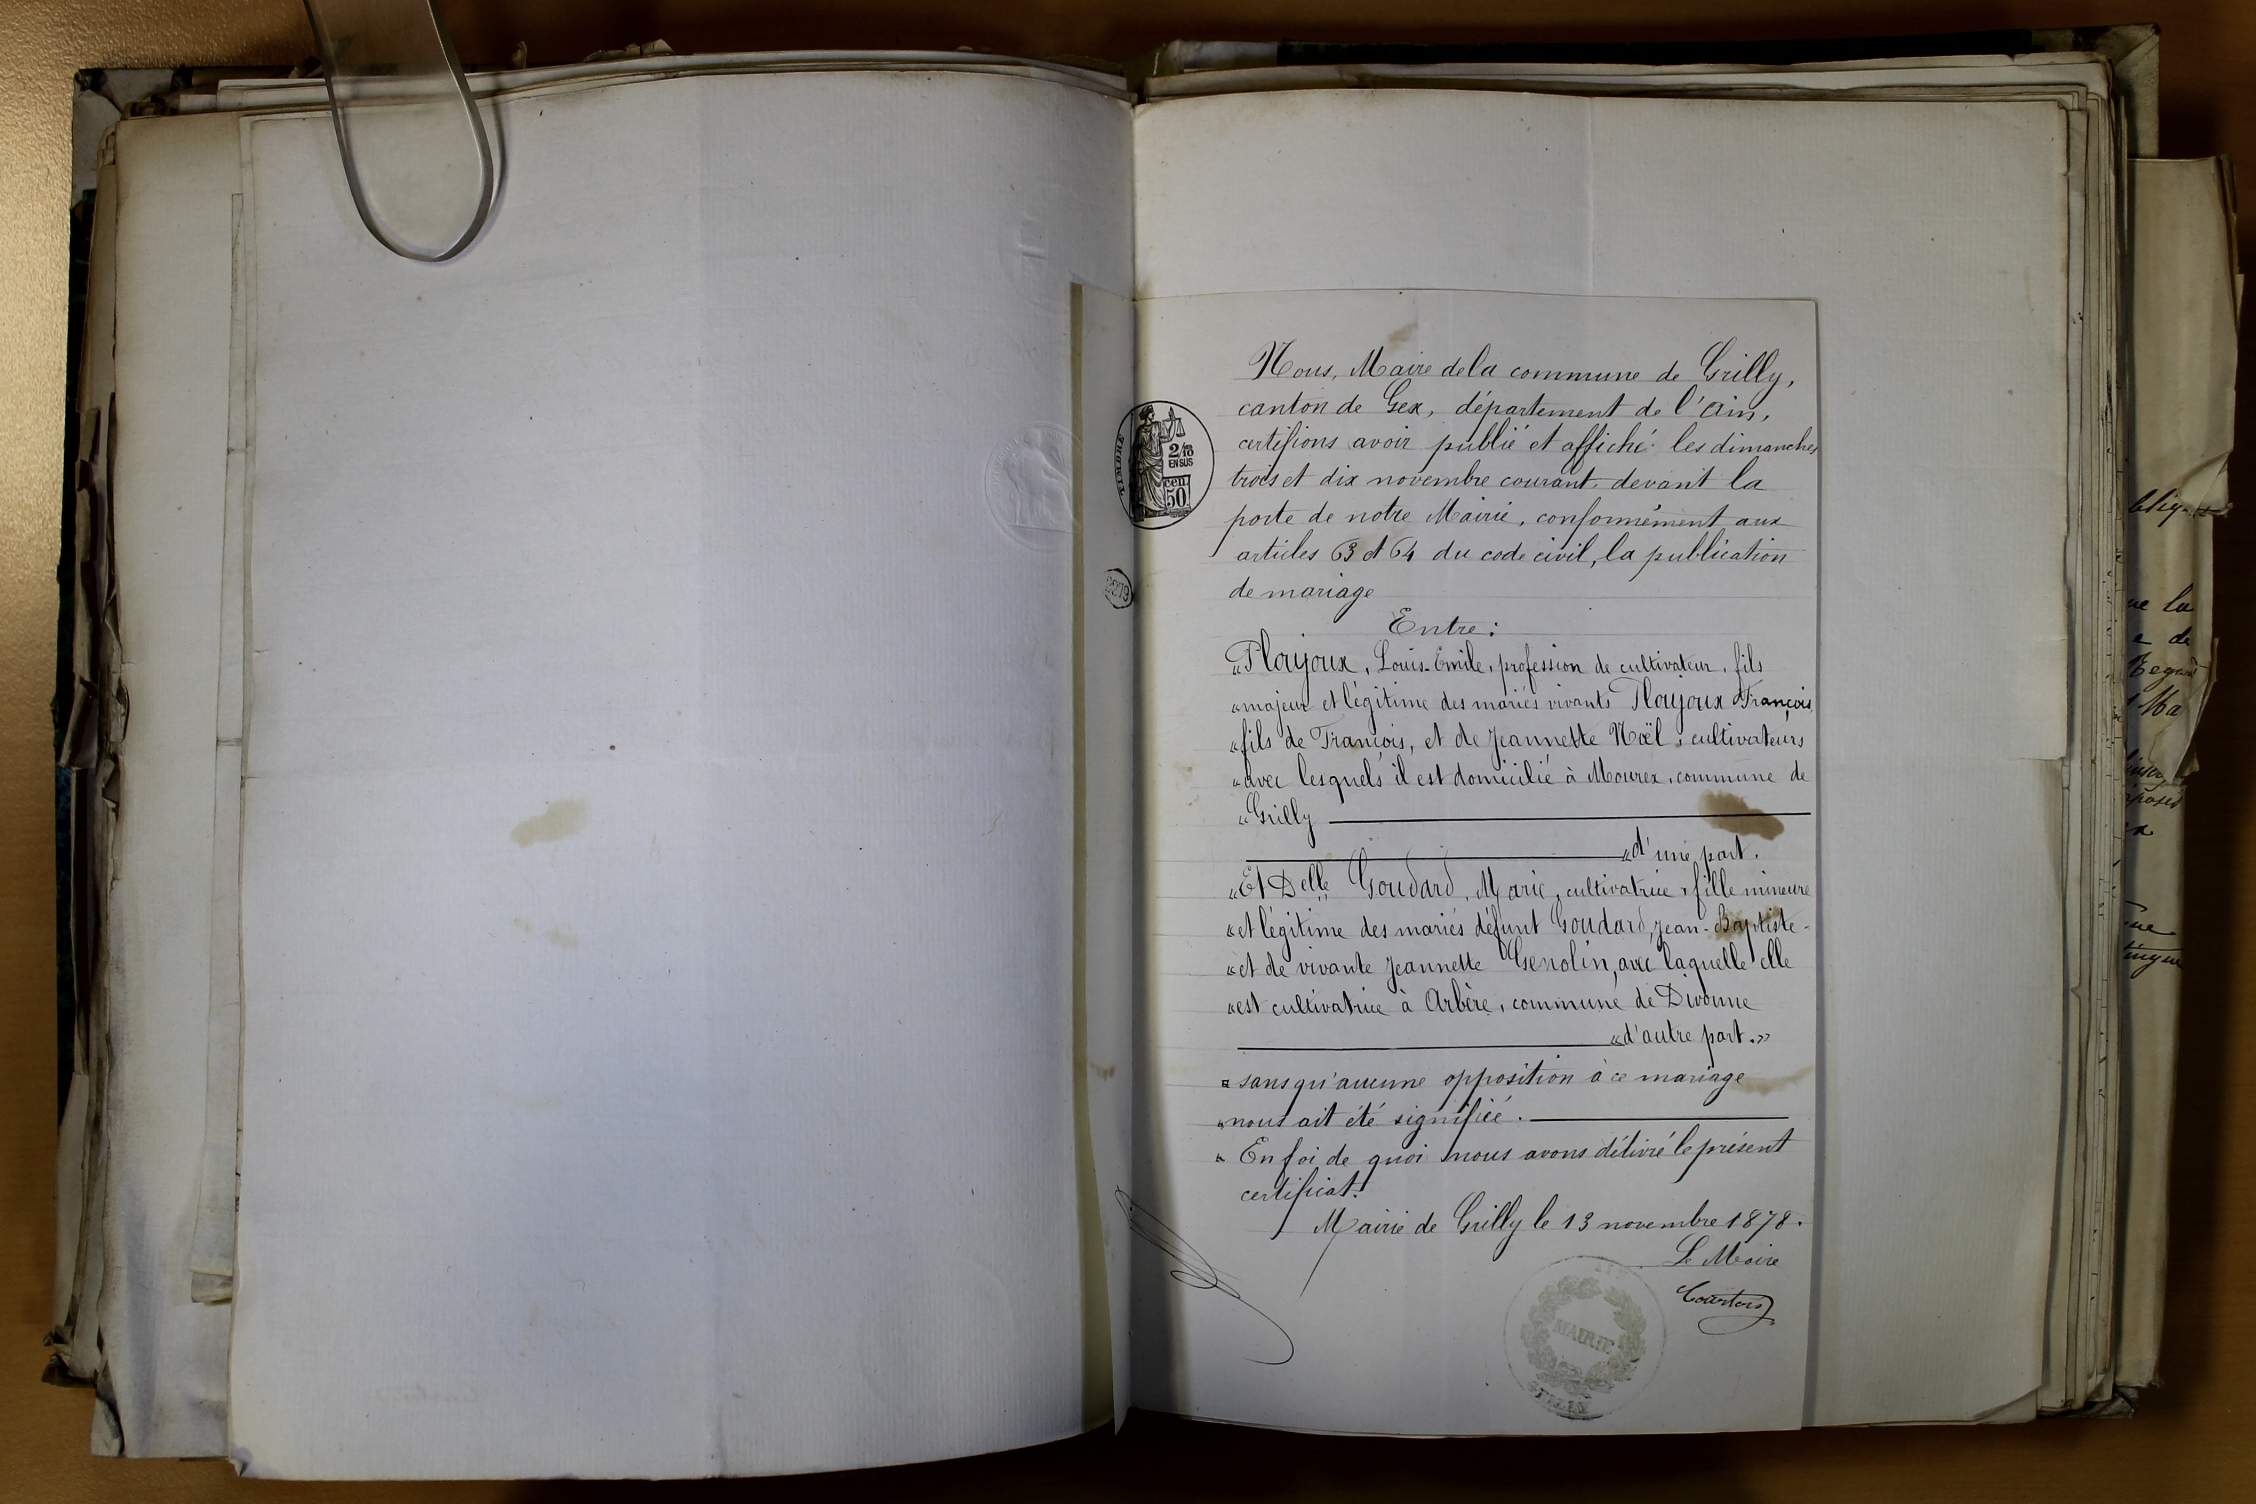 Nous, Maire de la commune de Grilly,
canton de Gex, département de l'Ain,
certifions avoir publié et affiché les dimanches
trois et dix novembre courant devant la
porte de notre Mairie, conformément aux
articles 63 et 64 du code civil, la publication
de mariage
Entre:
"Ploujoux, Louis-Emile, profession de cultivateur, fils
"majeur et légitime des mariés vivants Ploujoux François,
"fils de François, et de Jeannette Noël, cultivateurs
"avec lesquels il est domicilié à Mourex, commune de
"Grilly
"d'une part.
"Et Delle Goudard, Marie, cultivatrice, fille mineure
"et légitime des mariés défunt Goudard, Jean-Baptiste-
"et de vivante Jeannette Genolin, avec laquelle elle
"est cultivatrice à Arbère, commune de Divonne
"d'autre part.»
" sans qu'aucune opposition à ce mariage
"nous ait été signifiée.
" En foi de quoi nous avons délivré le présent
certificat.
Mairie de Grilly le 13 novembre 1878.
Le Maire
Courtois
TIMBRE
2/10
EN SUS
cen
50
MAIRIE
la
de
Ma